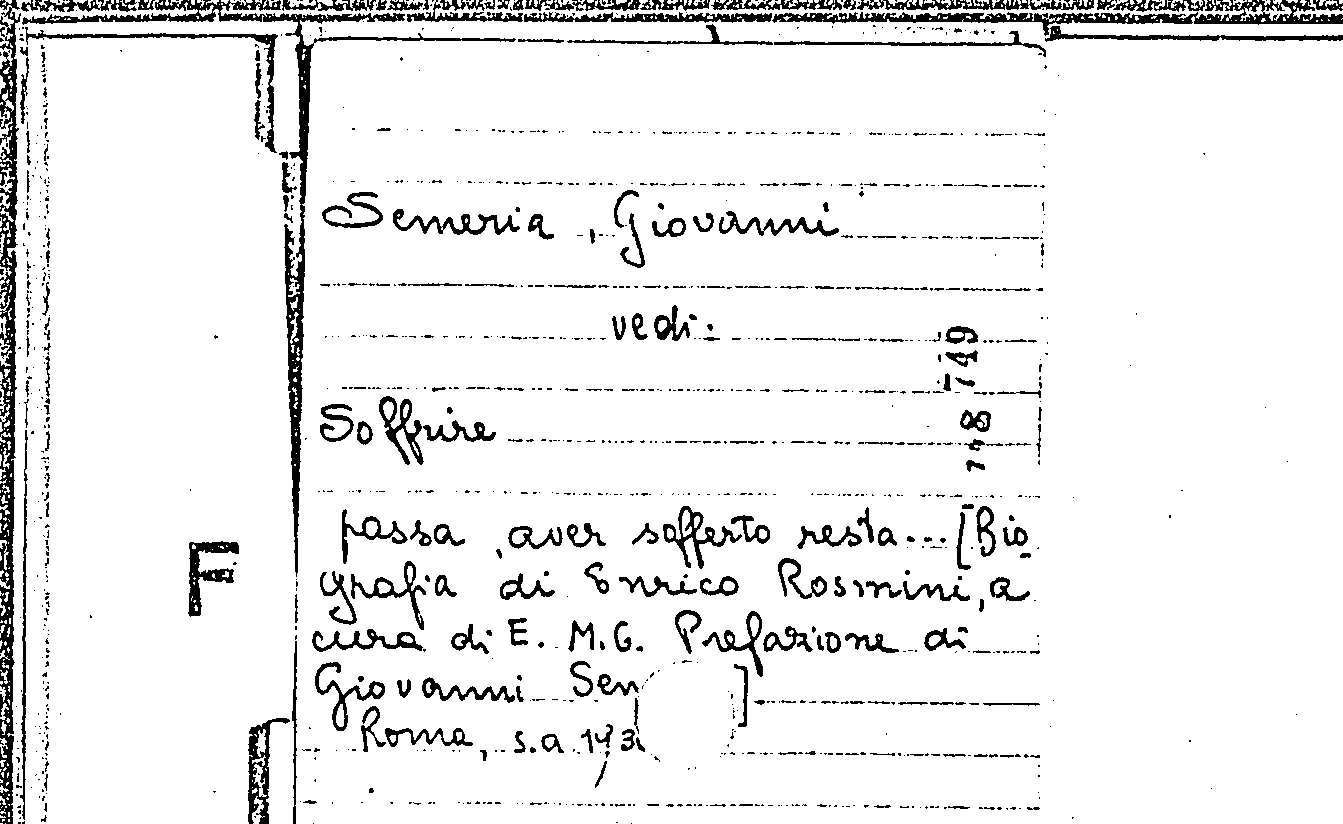 Semeria, Giovanni
vedi:
749
748
Soffrire
passa, aver sofferto resta...[Bio
grafia di Enrico Rosmini, a
cura di E. M. G. Prefazione di
Giovanni Sem ]
Roma, s.a
F